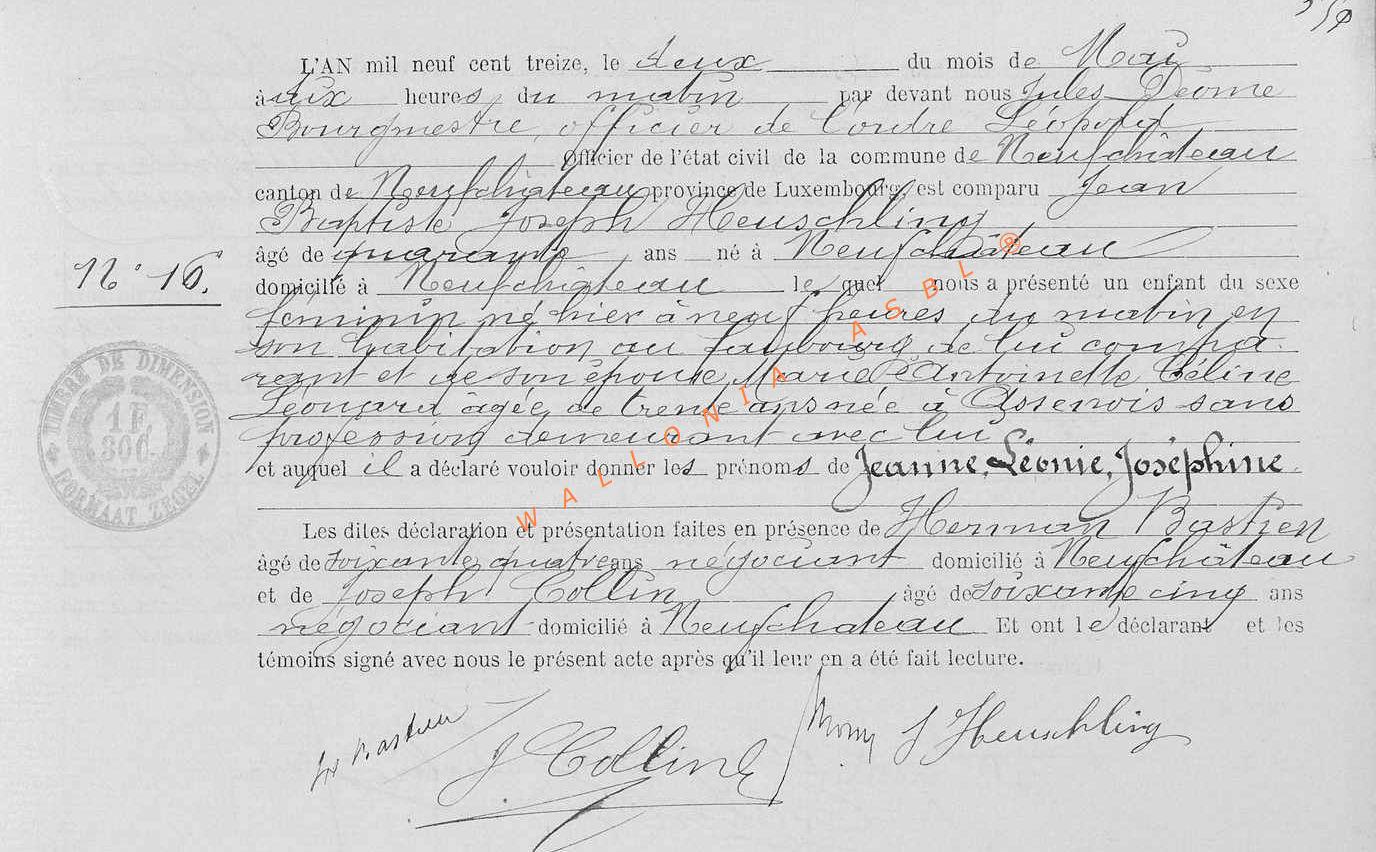 L'AN mil neuf cent treize, le deux du mois de Mai
à dix heures du matin par devant nous Jules Deome
Bourgmestre, officier de l'ordre Léopold
Officier de l'état civil de la commune de Neufchâteau
canton de Neufchâteau province de Luxembourg, est comparu Jean
Baptiste Joseph Heuschling
âgé de quarante ans né à Neufchâteau
N° 16.
domicilié à Neufchâteau lequel nous a présenté un enfant du sexe
féminin né hier à neuf heures du matin en
son habitation au faubourg de lui compa-
rant et de son épouse, Marie Antoinette Céline
Léonard âgée de trente ans née à Assenois sans
profession demeurant avec lui
et auquel il a déclaré vouloir donner les prénoms de Jeanne, Léonie, Joséphine.
Les dites déclaration et présentation faites en présence de Herman Bastien
âgé de soixante quatre ans négociant domicilié à Neufchâteau
et de Joseph Collin âgé de soixante cinq ans
négociant domicilié à Neufchateau Et ont le déclarant et les
témoins signé avec nous le présent acte après qu'il leur en a été fait lecture.
Bastien
J Collin
J Heuschling
TIMBRE DE DIMENSION
1 F.
30 C.
FORMAAT ZEGEL
WALLONIA ASBL ®